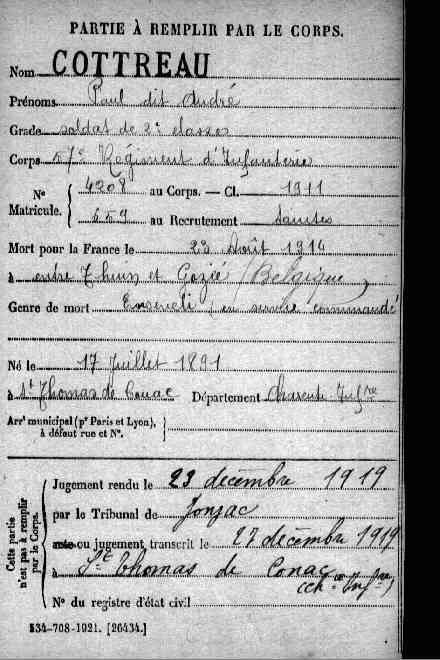 PARTIE À REMPLIR PAR LE CORPS.
Nom COTTREAU
Prénoms Paul dit André
Grade soldat de 2e classe
Corps 57e Régiment d'Infanterie
No Matricule. { 4208 au Corps. — Cl. 1911
559 au Recrutement Saintes
Mort pour la France le 23 Août 1914
à entre Thuin et Gozée (Belgique)
Genre de mort Enseveli, en service commandé
Né le 17 Juillet 1891
à St Thomas de Conac Département Charente Infre
Arrt municipal (pr Paris et Lyon), à défaut rue et No.
Cette partie n'est pas à remplir par le Corps.
Jugement rendu le 23 décembre 1919
par le Tribunal de Jonzac
acte ou jugement transcrit le 27 décembre 1919
à St Thomas de Conac
(Ch. Infre)
No du registre d'état civil
534-708-1921. [26434.]